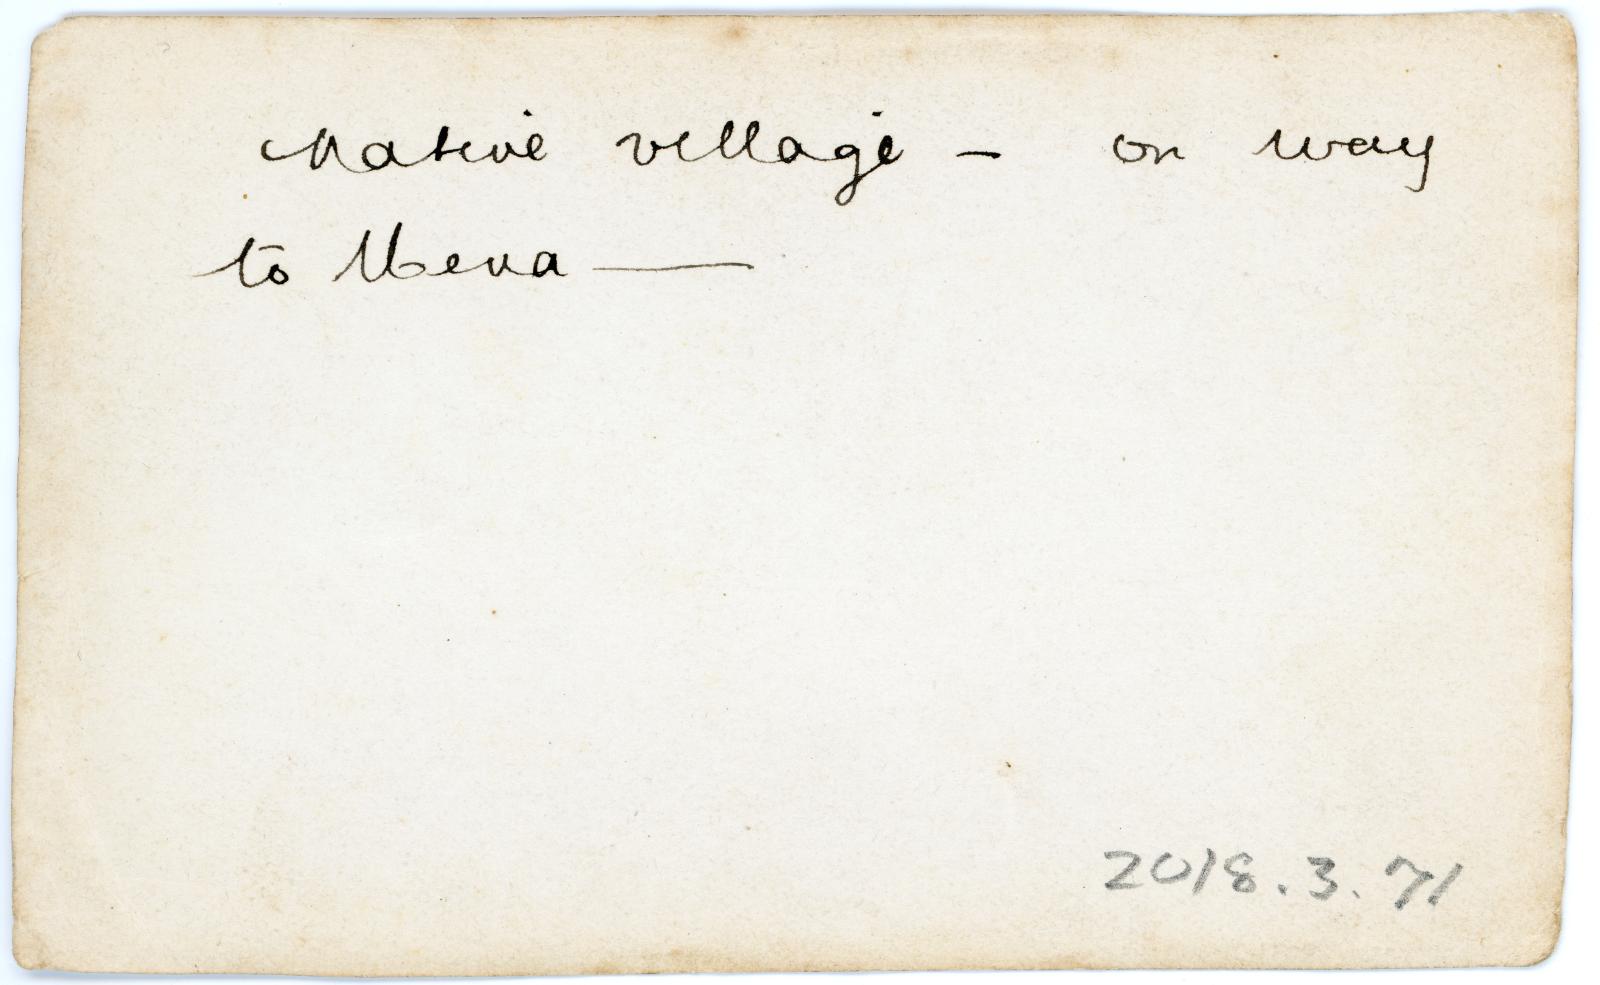 Native village – on way
to Mena ——
2018.3.71